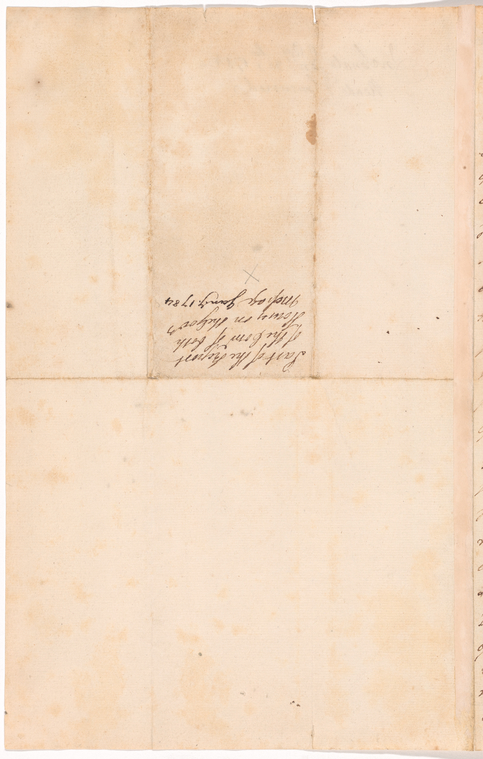 Part of the Report
of the Com of both
Houses on the Gov.rs
Message Jany. 1784